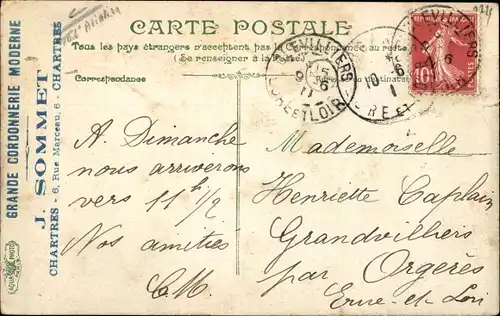 CARTE POSTALE
Tous les pays étrangers n'acceptent pas la Correspondance au recto.
(Se renseigner à la Poste)
Correspondance
GRANDE CORDONNERIE MODERNE
J. SOMMET
CHARTRES - 6, Rue Marceau, 6 - CHARTRES
A Dimanche
nous arriverons
vers 11h 1/2
Nos amitiés
Mademoiselle
Henriette Caplain
Grandvilliers
par Orgères
Eure et Loir
EURE ET LOIR
10c